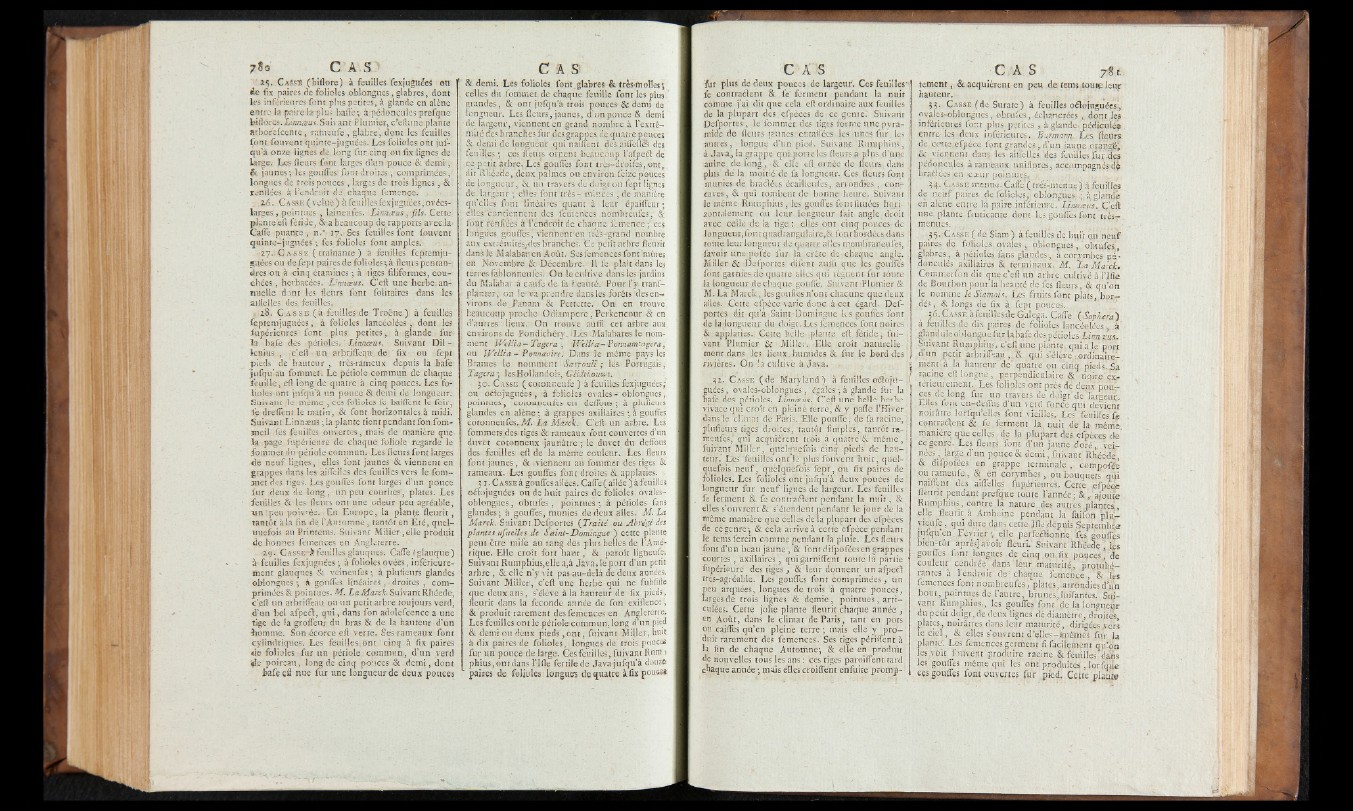 780 C A S
25. CASSE (biflore) à feuilles ſexjuguées ou
de ſix paires de folioles oblongues, glabres, dont
les inférieures ſont plus petites, à glande en alène
entre la paire la plus baſſe; à pédoncules preſque
biflores. Linnæus. Suivant Plumier, c'eſt une plante
arboreſcente, rameuſe, glabre, dont les feuilles
ſont ſouvent quinte-juguées. Les folioles ont juſ-
qu'à onze lignes de long ſur cinq ou ſix lignes de
large. Les fleurs ſont larges d'un pouce & demi,
& jaunes; les gouſſes ſont droites, comprimées,
longues de trois pouces, larges de trois lignes, &
renflées à l'endroit de chaque ſemence.
26. CASSE (velue) à feuilles ſexjuguées, ovées-
larges, pointues, laineuſes. Linnæus, fils. Cette
plante eſt fétide, & a beaucoup de rapports avec la
Caſſe puante, n.° 17. Ses feuilles ſont ſouvent
quinte-juguées; ſes folioles ſont amples.
27. CASSE (traînante) à feuilles ſeptemju-
guées ou de ſept paires de folioles; à fleurs pentan-
dres ou à cinq étamines; à tiges filiformes, cou-
chées, herbacées. Linnæus. C'eſt une herbe an-
nuelle dont les fleurs ſont ſolitaires dans les
aiſſelles des feuilles.
28. CASSE (à feuilles de Troëne) à feuilles
ſeptemjuguées, à folioles lancéolées, dont les
ſupérieures ſont plus petites, à glande ſur
la baſe des pétioles. Linnæus. Suivant Dil-
lenius, c'eſt un arbriſſeau de ſix ou ſept
pieds de hauteur, très-rameux depuis la baſe
juſqu'au ſommet. Le pétiole commun de chaque
feuille, eſt long de quatre à cinq pouces. Les fo-
lioles ont juſqu'à un pouce & demi de longueur.
Suivant le même, ces folioles ſe baiſſent le ſoir,
ſe dreſſent le matin, & ſont horizontales à midi.
Suivant Linnæus; la plante tient pendant ſon ſom-
meil ſes feuilles ouvertes, mais de manière que
la page ſupérieure de chaque foliole regarde le
ſommet du pétiole commun. Les fleurs ſont larges
de neuf lignes, elles ſont jaunes & viennent en
grappes dans les aiſſelles des feuilles vers le ſom-
met des tiges. Les gouſſes ſont larges d'un pouce
ſur deux de long, un peu courbes, plates. Les
feuilles & les fleurs ont une odeur peu agréable,
un peu poivrée. En Europe, la plante fleurit,
tantôt à la fin de l'Automne, tantôt en Eté, quel-
quefois au Printems. Suivant Miller, elle produit
de bonnes ſemences en Angleterre.
29. CASSE à feuilles glauques. Caſſe (glauque)
à feuilles ſexjuguées; à folioles ovées, inférieure-
ment glauques & veineuſes; à pluſieurs glandes
oblongues; à gouſſes linéaires, droites, com-
primées & pointues. M. La Marck. Suivant Rhéede,
c'eſt un arbriſſeau ou un petit arbre toujours verd,
d'un bel aſpect, qui, dans ſon adoleſcence a une
tige de la groſſeur du bras & de la hauteur d'un
homme. Son écorce eſt verte. Ses rameaux ſont
cylindriques. Les feuilles ont cinq à ſix paires
de folioles ſur un pétiole commun, d'un verd
de poireau, long de cinq pouces & demi, dont
baſe eſt nue ſur une longueur de deux pouces
C A S
& demi. Les folioles ſont glabres & très-molles;
celles du ſommet de chaque feuille ſont les plus
grandes, & ont juſqu'à trois pouces & demi de
longueur. Les fleurs, jaunes, d'un pouce & demi
de largeur, viennent en grand nombre à l'extré-
mité des branches ſur des grappes de quatre pouces
& demi de longueur qui naiſſent des aiſſelles des
feuilles; ces fleurs ornent beaucoup l'aſpect de
ce petit arbre. Les gouſſes ſont très-droites, ont,
dit Rhéede, deux palmes ou environ ſeize pouces
de longueur, & un travers de doigt ou ſept lignes
de largeur; elles ſont très-minces, de manière
qu'elles ſont linéaires quant à leur épaiſſeur;
elles contiennent des ſemences nombreuſes, &
ſont renflées à l'endroit de chaque ſemence; ces
longues gouſſes viennent en très-grand nombre
aux extrémités des branches. Ce petit arbre fleurit
dans le Malabar en Août. Ses ſemences ſont mûres
en Novembre & Décembre. Il ſe plaît dans les
terres ſablonneuſes. On le cultive dans les jardins
du Malabar à cauſe de ſa beauté. Pour l'y tranſ-
planter, on le va prendre dans les forêts des en-
virons de Panam & Pertette. On en trouve
beaucoup proche Odiampere, Perkencour & en
d'autres lieux. On trouve auſſi cet arbre aux
environs de Pondichéry. Les Malabares le nom-
ment Wellia-Tagera, Wellia-Ponnamtagera,
ou Wellia-Ponnavire. Dans le même pays les
Brames le nomment Sarrouli; les Portugais,
Tagera; les Hollandois, Gleditsiomus.
30. CASSE (cotonneuſe) à feuilles ſexjuguées;
ou octojuguées, à folioles ovales-oblongues,
pointues, cotonneuſes en deſſous; à pluſieurs
glandes en alène; à grappes axillaires; à gouſſes
cotonneuſes. M. La Marck. C'eſt un arbre. Les
ſommets des tiges & rameaux ſont couvertes d'un
duvet cotonneux jaunâtre; le duvet du deſſous
des feuilles eſt de la même couleur. Les fleurs
ſont jaunes, & viennent au ſommet des tiges &
rameaux. Les gouſſes ſont droites & applaties.
31. CASSE à gouſſes ailées. Caſſe (ailée) à feuilles
octojuguées ou de huit paires de folioles ovales-
oblongues, obtuſes, pointues; à pétioles ſans
glandes; à gouſſes, munies de deux ailes. M. La
Marck. Suivant Deſportes (Traité ou Abrégé des
plantes uſuelles de Saint-Domingue) cette plante
peut être miſe au rang des plus belles de l'Amé-
rique. Elle croît fort haut, & paroît ligneuſe.
Suivant Rumphius, elle a, à Java, le port d'un petit
arbre, & elle n'y vit pas au-delà de deux années.
Suivant Miller, c'eſt une herbe qui ne ſubſiſte
que deux ans, s'élève à la hauteur de ſix pieds,
fleurit dans la ſeconde année de ſon exiſtence,
& produit rarement des ſemences en Angleterre.
Les feuilles ont le pétiole commun, long d'un pied
& demi ou deux pieds, ont, ſuivant Miller, huit
à dix paires de folioles, longues de trois pouces
ſur un pouce de large. Ces feuilles, ſuivant Rum-
phius, ont dans l'Iſle fertile de Java juſqu'à douze
paires de folioles longues de quatre à ſix pouces
C A S
ſur plus de deux pouces de largeur. Ces feuilles
ſe contractent & ſe ferment pendant la nuit
comme j'ai dit que cela eſt ordinaire aux feuilles
de la plupart des eſpèces de ce genre. Suivant
Deſportes, le ſommet des tiges forme une pyra-
mide de fleurs jaunes entaſſées les unes ſur les
autres, longue d'un pied. Suivant Rumphius,
à Java, la grappe qui porte les fleurs a plus d'une
aulne de long, & elle eſt ornée de fleurs dans
plus de la moitié de ſa longueur. Ces fleurs ſont
munies de bractées écailleuſes, arrondies, con-
caves, & qui tombent de bonne heure. Suivant
le même Rumphius, les gouſſes ſont ſituées hori-
zontalement ou leur longueur fait angle droit
avec celle de la tige: elles ont cinq pouces de
longueur, ſont quadrangulaires, & ſont bordées dans
toute leur longueur de quatre ailes membraneuſes,
ſavoir une poſée ſur la crête de chaque angle.
Miller & Deſportes diſent auſſi que les gouſſes
ſont garnies de quatre ailes qui règnent ſur toute
la longueur de chaque gouſſe. Suivant Plumier &
M. La Marck, les gouſſes n'ont chacune que deux
ailes. Cette eſpèce varie donc à cet égard. Deſ-
portes dit qu'à Saint-Domingue les gouſſes ſont
de la longueur du doigt. Les ſemences ſont noires
& applaties. Cette belle plante eſt fétide, ſui-
vant Plumier & Miller. Elle croît naturelle-
ment dans les lieux humides & ſur le bord des
rivières. On la cultive à Java.
32. CASSE (de Maryland) à feuilles octoju-
guées, ovales-oblongues, égales; à glande ſur la
baſe des pétioles. Linnæus. C'eſt une belle herbe
vivace qui croît en pleine terre, & y paſſe l'Hiver
dans le climat de Paris. Elle pouſſe, de ſa racine,
pluſieurs tiges droites, tantôt ſimples, tantôt ra-
meuſes, qui acquièrent trois à quatre & même,
ſuivant Miller, quelquefois cinq pieds de hau-
teur. Les feuilles ont le plus ſouvent huit, quel-
quefois neuf, quelquefois ſept, ou ſix paires de
folioles. Les folioles ont juſqu'à deux pouces de
longueur ſur neuf lignes de largeur. Les feuilles
ſe ferment & ſe contractent pendant la nuit, &
elles s'ouvrent & s'étendent pendant le jour de la
même manière que celles de la plupart des eſpèces
de ce genre; & cela arrive à cette eſpèce pendant
le tems ſerein comme pendant la pluie. Les fleurs
ſont d'un beau jaune, & ſont diſpoſées en grappes
courtes, axillaires, qui garniſſent toute la partie
ſupérieure des tiges, & leur donnent un aſpect
très-agréable. Les gouſſes ſont comprimées, un
peu arquées, longues de trois à quatre pouces,
larges de trois lignes & demie, pointues, arti-
culées. Cette jolie plante fleurit chaque année,
en Août, dans le climat de Paris, tant en pots
ou caiſſes qu'en pleine terre; mais elle y pro-
duit rarement des ſemences. Ses tiges périſſent à
la fin de chaque Automne; & elle en produit
de nouvelles tous les ans: ces tiges paroiſſent tard
chaque année; mais elles croiſſent enſuite promp-
C A S 781
tement, & acquièrent en peu de tems toute leur
hauteur.
33. CASSE (de Surate) à feuilles octojuguées,
ovales-oblongues, obtuſes, échancrées, dont les
inférieures ſont plus petites, à glande pédiculée
entre les deux inférieures. Burmann. Les fleurs
de cette eſpèce ſont grandes, d'un jaune orangé,
& viennent dans les aiſſelles des feuilles ſur des
pédoncules à rameaux uniflores, accompagnés de
bractées en cœur pointues.
34. CASSE menue. Caſſe (très-menue) à feuilles
de neuf paires de folioles, oblongues; à glande
en alène entre la paire inférieure. Linnæus. C'eſt
une plante fruticante dont les gouſſes ſont très-
menues.
35. CASSE (de Siam) à feuilles de huit ou neuf
paires de folioles ovales, oblongues, obtuſes,
glabres, à pétioles ſans glandes, à corymbes pé-
donculés axillaires & terminaux. M. La Marck.
Commerſon dit que c'eſt un arbre cultivé à l'Iſle
de Bourbon pour la beauté de ſes fleurs, & qu'on
le nomme le Siamois. Les fruits ſont plats, bor-
dés, & longs de ſix à ſept pouces.
36. CASSE à feuilles de Galega. Caſſe (Sophera)
à feuilles de dix paires de folioles lancéolées, à
glandule oblongue ſur la baſe des pétioles Linnæus.
Suivant Rumphius, c'eſt une plante qui a le port
d'un petit arbriſſeau, & qui s'élève ordinaire-
ment à la hauteur de quatre ou cinq pieds. Sa
racine eſt longue, perpendiculaire & noire ex-
térieurement. Les folioles ont près de deux pou-
ces de long ſur un travers de doigt de largeur.
Elles ſont en-deſſus d'un verd foncé qui devient
noirâtre lorſqu'elles ſont vieilles. Les feuilles ſe
contractent & ſe ferment la nuit de la même
manière que celles de la plupart des eſpèces de
ce genre. Les fleurs ſont d'un jaune doré, vei-
nées, large d'un pouce & demi, ſuivant Rhéede,
& diſpoſées en grappe terminale, compoſée
ou rameuſe, & en corymbes, ou bouquets qui
naiſſent des aiſſelles ſupérieures. Cette eſpèce
fleurit pendant preſque toute l'année; &, ajoute
Rumphius, contre la nature des autres plantes,
elle fleurit à Amboine pendant la ſaiſon plu-
vieuſe, qui dure dans cette Iſle depuis Septembre
juſqu'en Février, elle perfectionne ſes gouſſes
bien-tôt après avoir fleuri. Suivant Rhéede, les
gouſſes ſont longues de cinq ou ſix pouces, de
couleur cendrée dans leur maturité, protubé-
rantes à l'endroit de chaque ſemence, & les
ſemences ſont nombreuſes, plates, arrondies d'un
bout, pointues de l'autre, brunes, luiſantes. Sui-
vant Rumphius, les gouſſes ſont de la longueur
du petit doigt, de deux lignes de diametre, droites,
plates, noirâtres dans leur maturité, dirigées vers
le ciel, & elles s'ouvrent d'elles-mêmes ſur la
plante. Les ſemences germent ſi facilement qu'on
les voit ſouvent produire racine & feuilles dans
les gouſſes même qui les ont produites, lorſque
ces gouſſes ſont ouvertes ſur pied. Cette plante